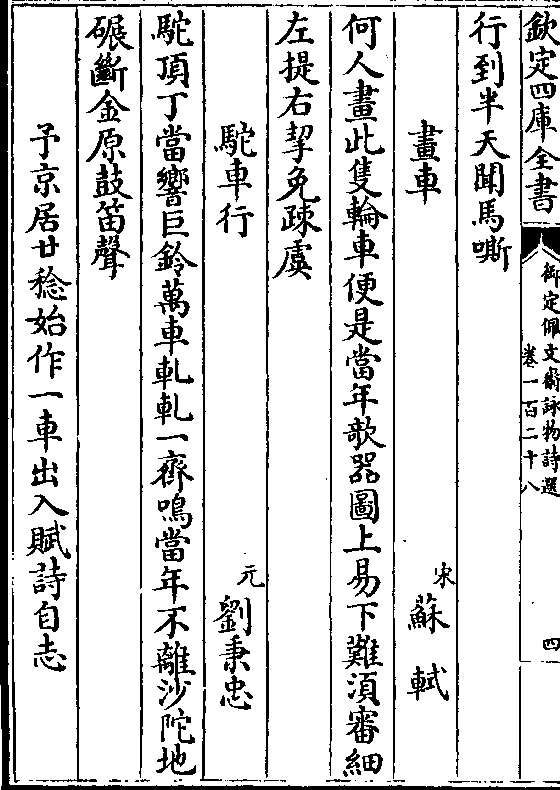 欽定四庫全書
御定佩文齋詠物詩選
卷一百二十八
四
行到半天聞馬嘶
畫車
宋
蘇軾
何人畫此隻輪車便是當年欹器圖上易下難須審細
左提右挈免疎虞
駝車行
元
劉秉忠
駝頂丁當響巨鈴萬車軋軋一齊鳴當年不離沙陀地
碾斷金原鼓笛聲
予京居廿稔始作一車出入賦詩自志